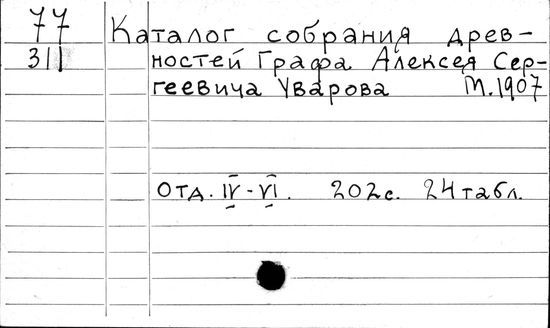 77
311
Каталог собрания древ-
ностей Графа Алексея Сер-
геевича Уварова М. 1907
Отд. IV-VI. 202 с. 24 табл.